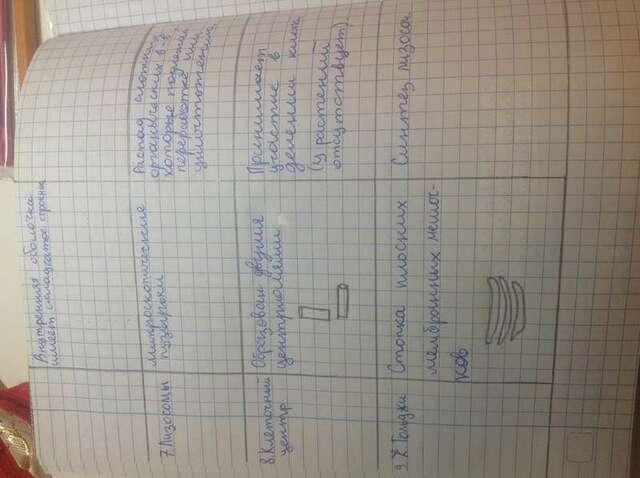 Внутренняя оболочка
имеет складчатое строение
7. Лизосомы
микроскопические
пузырьки
Распад сложных
органических в-в,
которые подлежат
переработке или
уничтожению
8. Клеточный
центр
Образован двумя
центриолями
Принимает
участие в
делении клетки
(У растений
отсутствует)
9. Гольджи
Стопка плоских
мембранных мешоч-
ков
Синтез лизосом